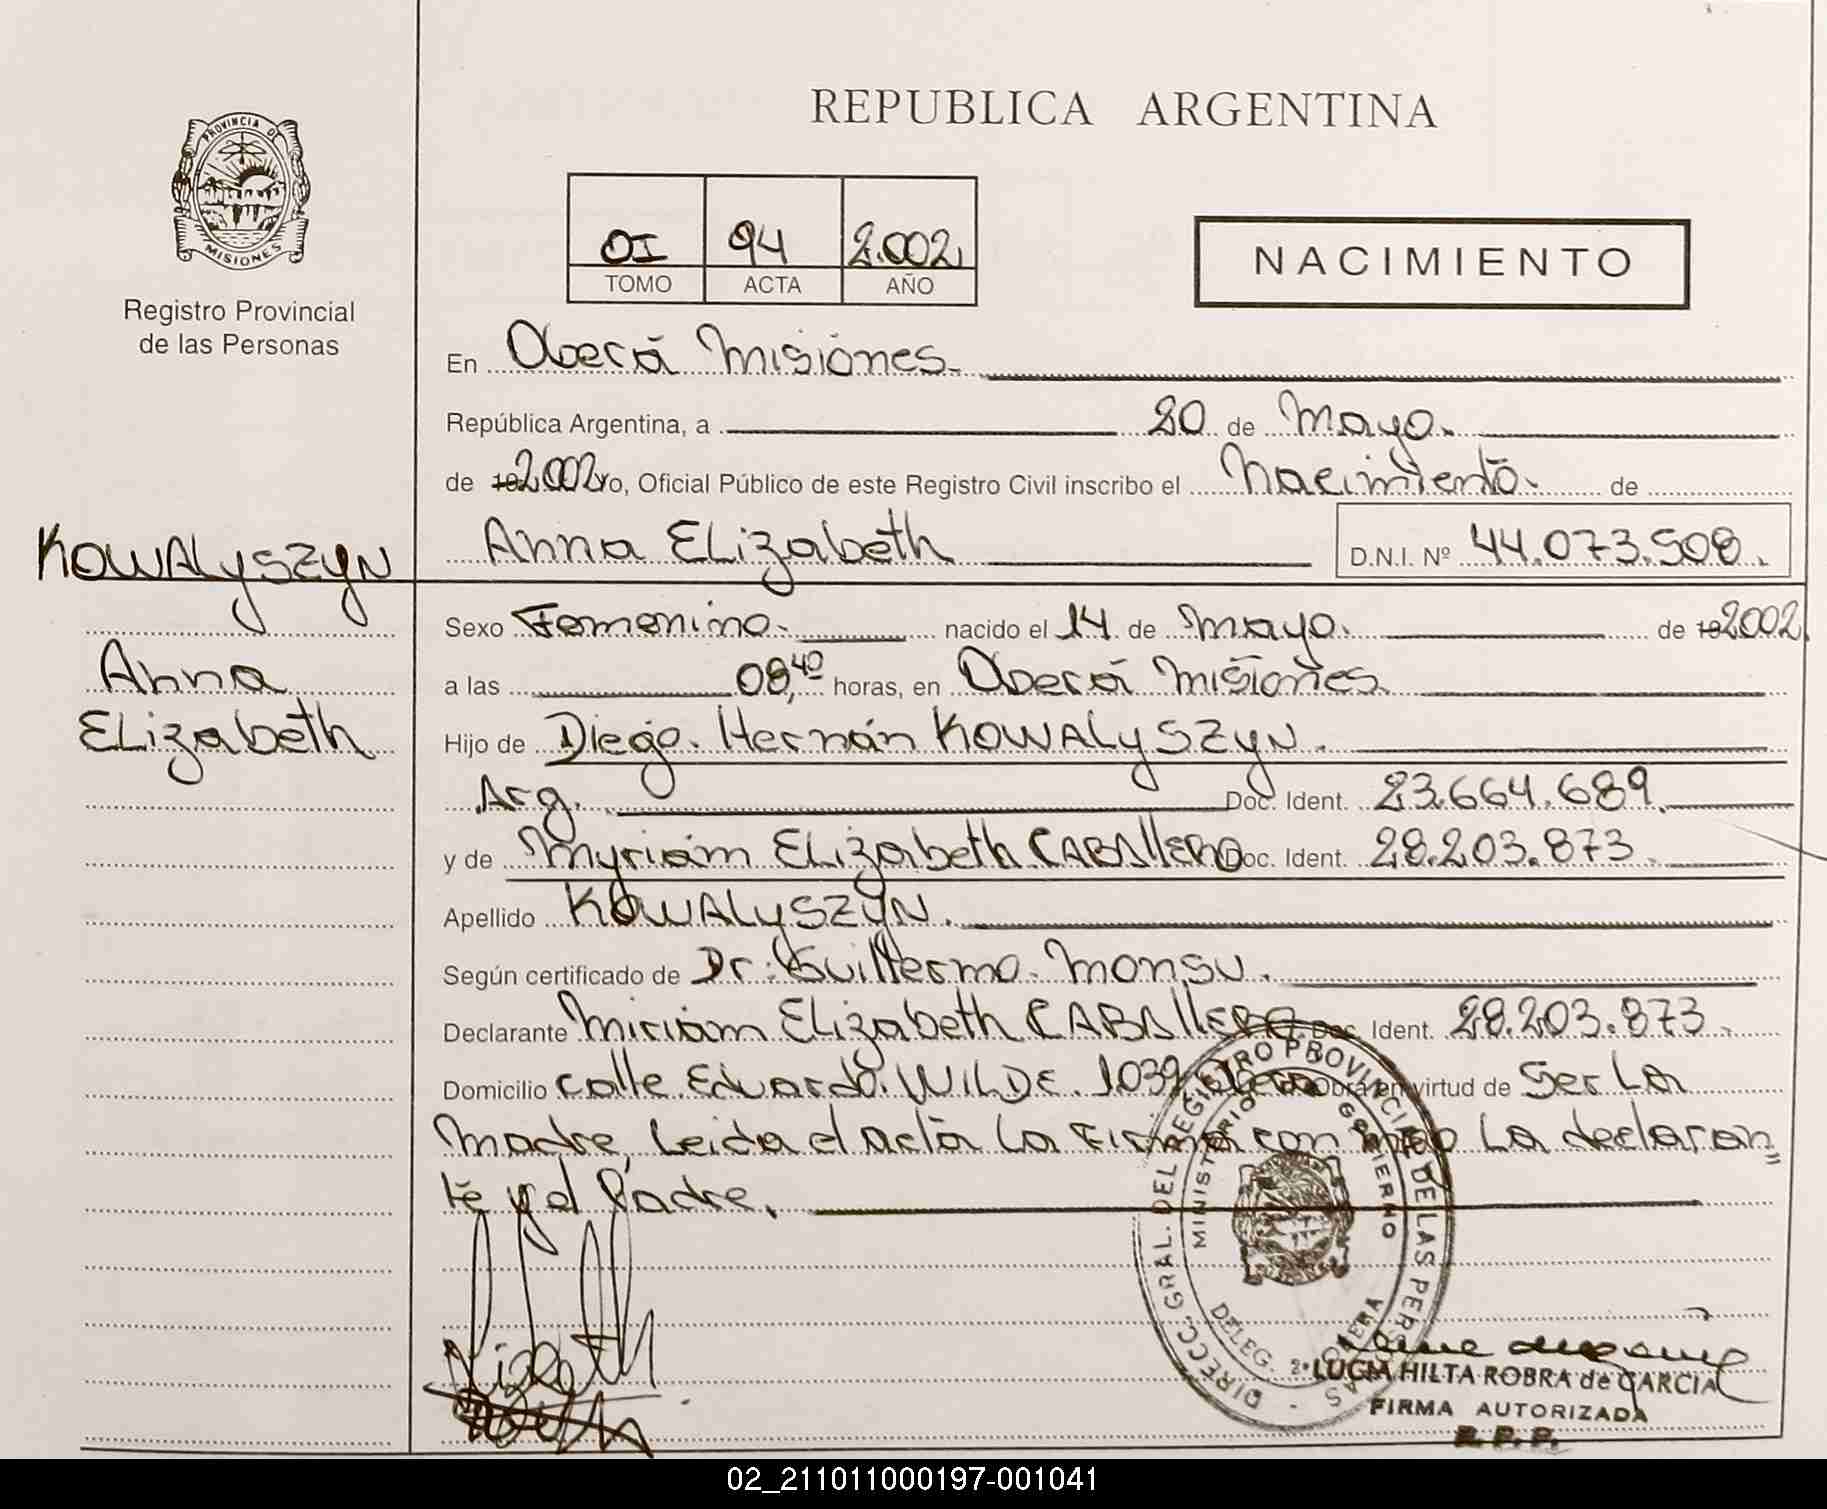 REPUBLICA ARGENTINA
PROVINCIA DE
MISIONES
Registro Provincial
de las Personas
OI 94 2.002
TOMO ACTA AÑO
NACIMIENTO
En Oberá Misiones.
República Argentina, a 20 de Mayo.
de 19 2.002 Yo, Oficial Público de este Registro Civil inscribo el Nacimiento. de
KOWALYSZYN
Anna Elizabeth D.N.I. Nº 44.073.508.
Anna
Elizabeth
Sexo Femenino. nacido el 14 de Mayo. de 19 2002
a las 08,40 horas, en Oberá Misiones.
Hijo de Diego. Hernán KOWALYSZYN.
Arg. Doc. Ident. 23.664.689.
y de Myriam Elizabeth CABALLERO Doc. Ident. 28.203.873.
Apellido KOWALYSZYN.
Según certificado de Dr. Guillermo. Monsu.
Declarante Miriam Elizabeth CABALLERO Doc. Ident. 28.203.873.
Domicilio calle. Eduardo. WILDE. 1039 Oberá en virtud de Ser La
Madre, Leida el acta La Firma con migo La declaran"
te y el Padre.
DIRECC. GRAL. DEL REGISTRO PROVINCIAL DE LAS PERSONAS
MINISTERIO DE GOBIERNO
DELEG. OBERA
LUCIA HILTA ROBRA de GARCIA
FIRMA AUTORIZADA
R. P. P.
02_211011000197-001041